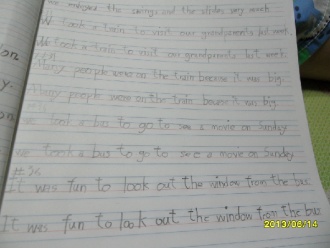 we enjoyed the swings and the slides very much.
We took a train to visit our grandparents last week.
We took a train to visit our grandparents last week.
Many people were on the train because it was big.
Many people were on the train because it was big.
we took a bus to go to see a movie on Sunday
we took a bus to go to see a movie on Sunday
It was fun to look out the window from the bus
It was fun to look out the window from the bus
2013/06/14